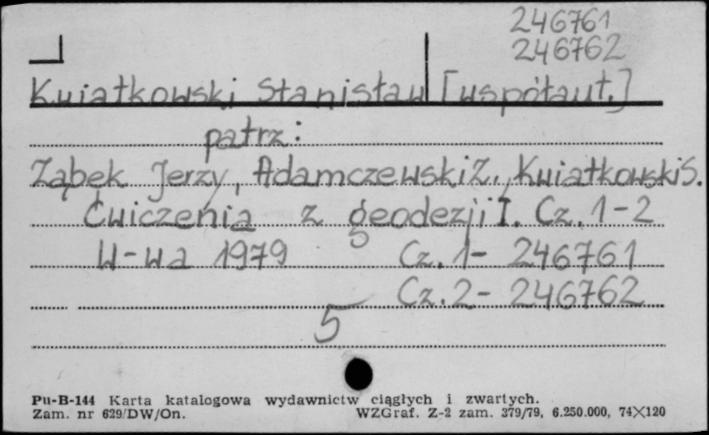 246761
246762
Kwiatkowski Stanisław [współaut.]
patrz:
Ząbek Jerzy, Adamczewski Z., Kwiatkowski S.
Ćwiczenia z geodezji I. Cz. 1-2
W-wa 1979 Cz. 1- 246761
Cz. 2- 246762
5
Pu-B-144 Karta katalogowa wydawnictw ciągłych i zwartych.
Zam. nr 629/DW/On. WZGraf. Z-2 zam. 379/79, 6.250.000, 74×120